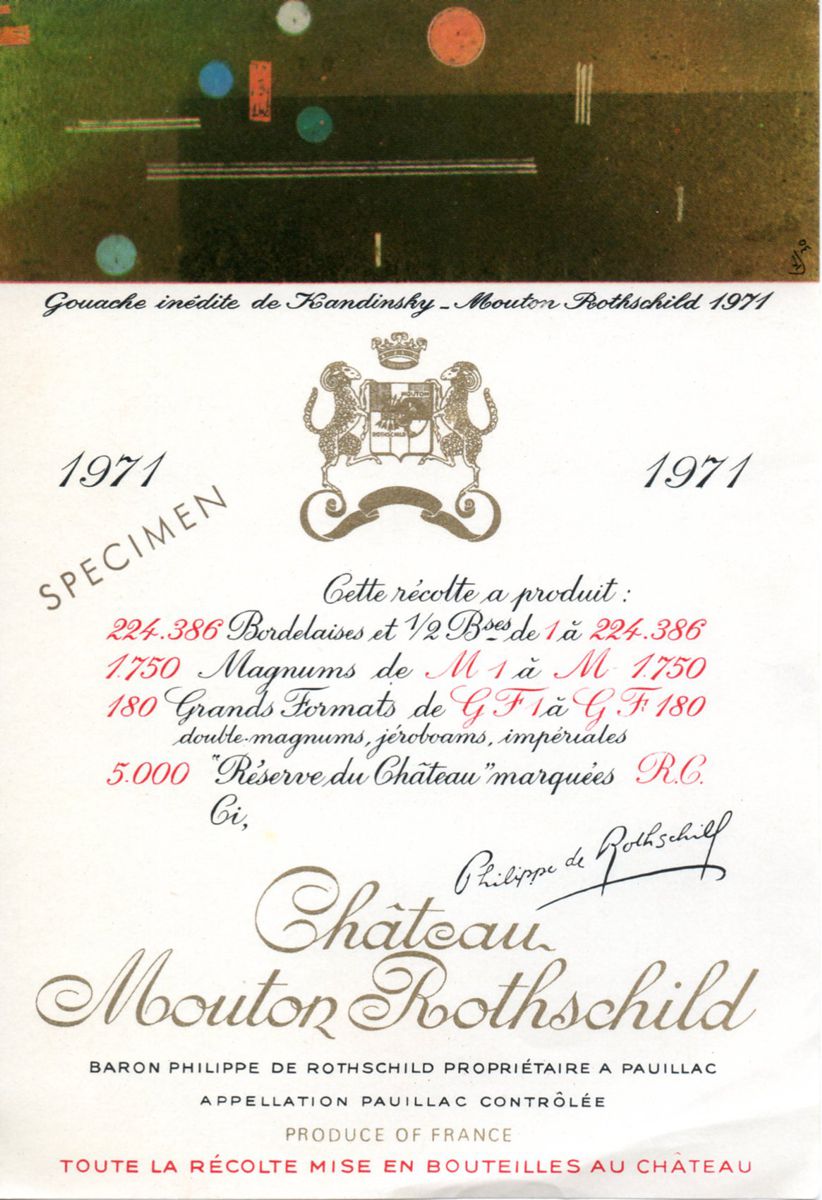 Gouache inédite de Kandinsky - Mouton Rothschild 1971
MOUTON
ROTHSCHILD
1971 1971
SPECIMEN
Cette récolte a produit :
224.386 Bordelaises et 1/2 Bses de 1 à 224.386
1.750 Magnums de M 1 à M 1.750
180 Grands Formats de G F 1 à G F 180
double-magnums, jéroboams, impériales
5.000 "Réserve du Château" marquées R.C.
Ci,
Philippe de Rothschild
Château
Mouton Rothschild
BARON PHILIPPE DE ROTHSCHILD PROPRIÉTAIRE A PAUILLAC
APPELLATION PAUILLAC CONTRÔLÉE
PRODUCE OF FRANCE
TOUTE LA RÉCOLTE MISE EN BOUTEILLES AU CHÂTEAU